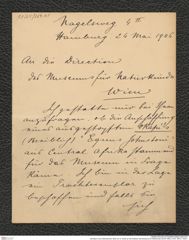 Nagelsweg 4 II
Hamburg 26 Mai 1906
An die Direction
des Museums für Naturkunde
Wien
Ich gestatte mir bei Ihnen
anzufragen, ob der Anschaffung
eines ausgestopften Okapi's
Johnstoni
aus Central Afrika stammend
für das Museum in Frage
käme. Ich bin in der Lage
ein Prachtexemplar zu
beschaffen und falls Sie
sich